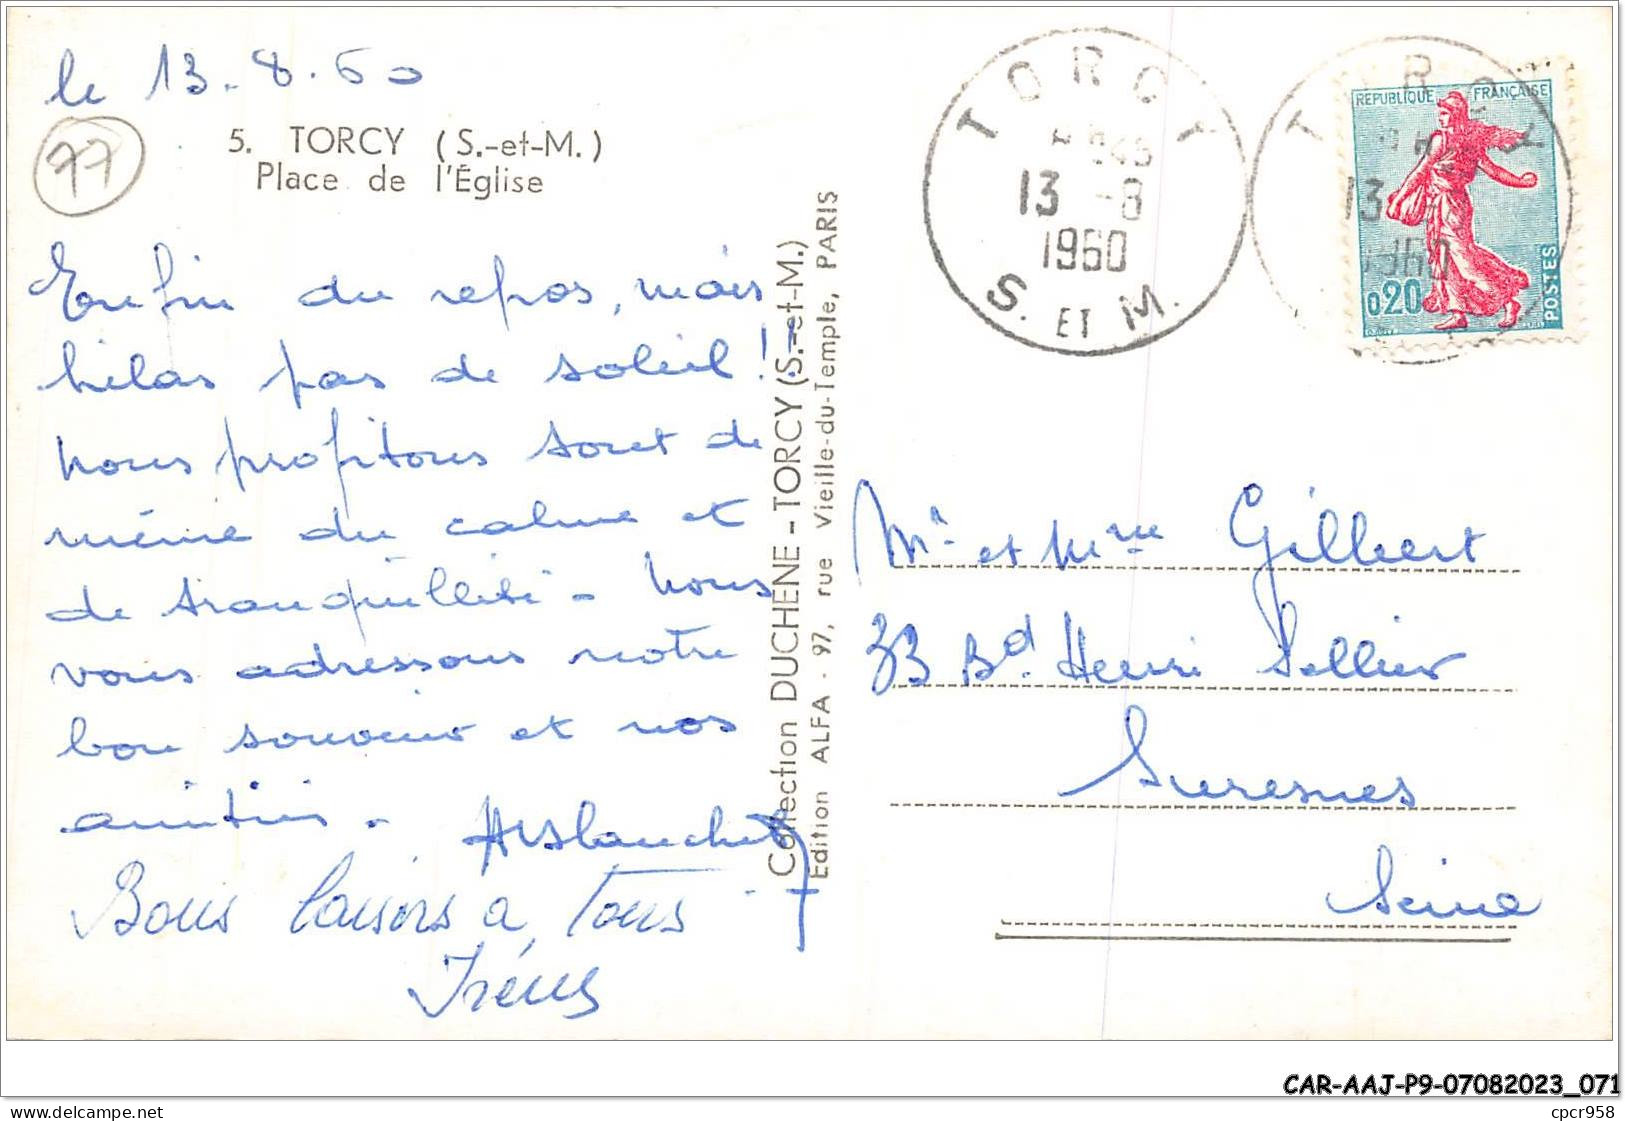 le 13.8.60
77
5. TORCY (S.-et-M.)
Place de l'Église
Enfin du repos, mais
hélas pas de soleil !!
Nous profitons tout de
même du calme et
de tranquillité - Nous
vous adressons notre
bon souvenir et nos
amitiés.
Bons loisirs a Tous
Collection DUCHÊNE - TORCY (S.-et-M.)
Edition ALFA - 97, rue Vieille-du-Temple, PARIS
TORCY
13 -8
1960
S. ET M.
TORCY
13
1960
REPUBLIQUE FRANÇAISE
0,20
POSTES
Mr et Mme Gilbert
33 Bd. Henri Sellier
Suresnes
Seine
CAR-AAJ-P9-07082023_071
Delcampe.net
cpcr958